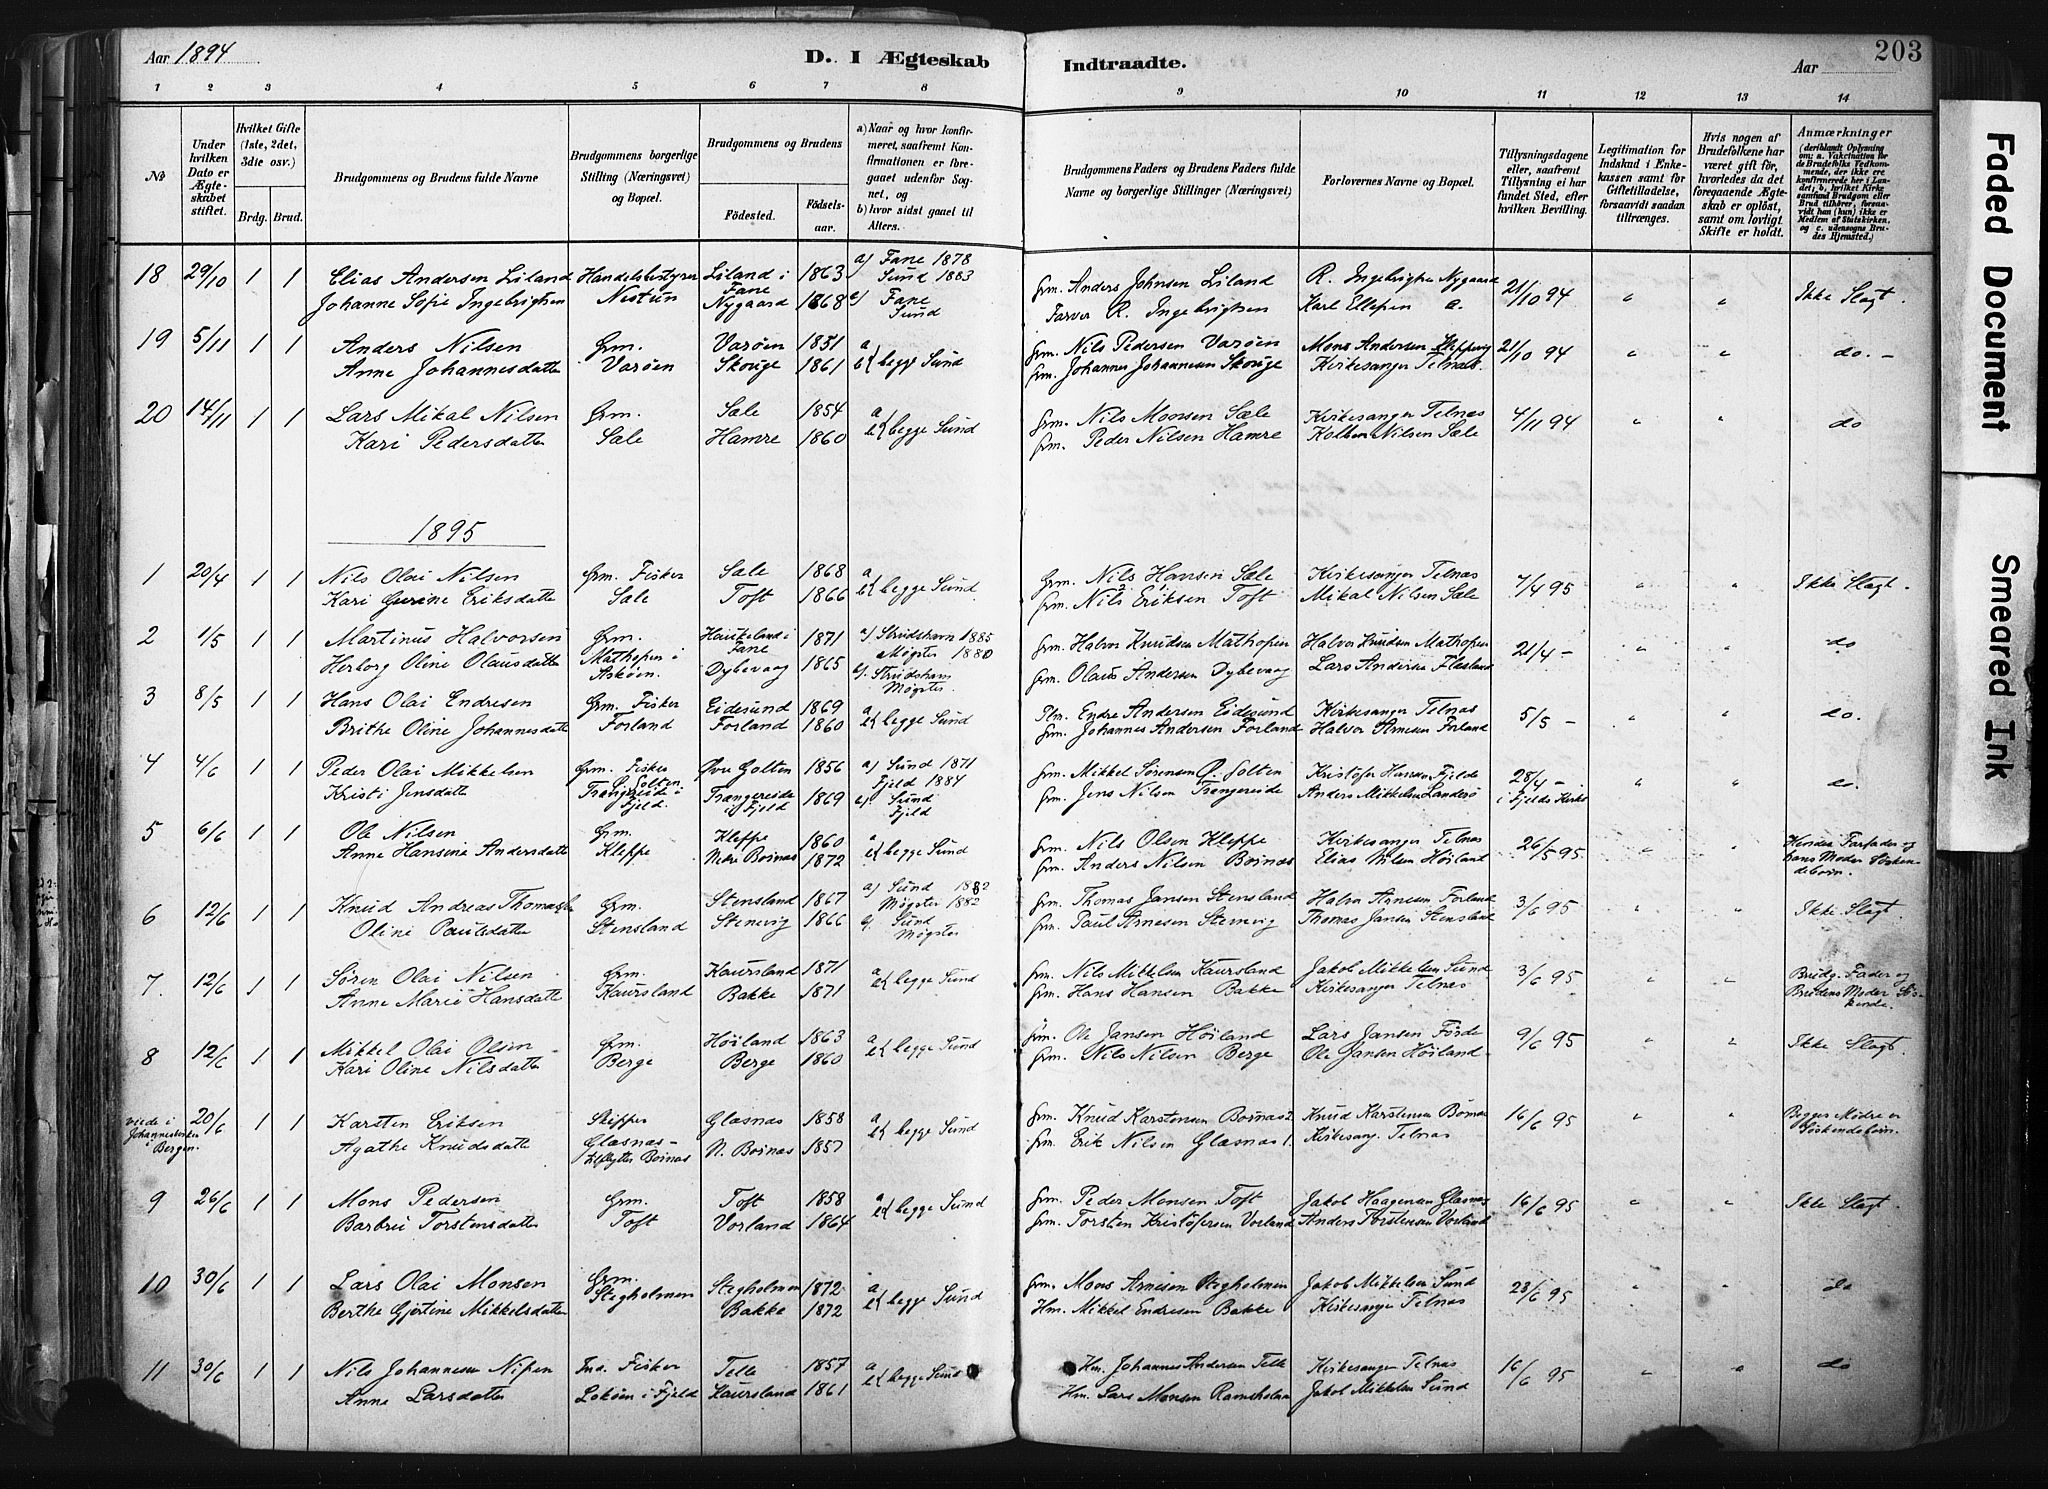 Aar 1894
D. I Ægteskab
Indtraadte.
Aar
203
1 2 3 4 5 6 7 8 9 10 11 12 13 14
No
Under hvilken Dato er Ægteskabet stiftet.
Hvilket Gifte (1ste, 2det, 3die osv.)
Brdg. Brud.
Brudgommens og Brudens fulde Navne
Brudgommens borgerlige Stilling (Næringsvei) og Bopæl.
Brudgommens og Brudens
Födested.
Födselsaar.
a) Naar og hvor Konfirmeret, saafremt Konfirmationen er foregaaet udenför Sognet, og
b) hvor sidst gaaet til Alters.
Brudgommens Faders og Brudens Faders fulde Navne og borgerlige Stillinger (Næringsvei)
Forlovernes Navne og Bopæl.
Tillysningsdagene eller, saafremt Tillysning ei har fundet Sted, efter hvilken Bevilling.
Legitimation for Indskud i Enkekassen samt før Giftetilladelse, forsaavidt saadan tiltrænges.
Hvis nogen af Brudefolkene har været gift før, hvorledes da det foregaaende Ægteskab er opløst, samt om lovligt Skifte er holdt.
Anmærkninger (deriblandt Oplysning om: a. Vakcination for de Brudefolks Vedkommende, der ikke ere konfirmerede her i Landet; b. hvilket Kirkesamfund Brudgom eller Brud tilhører, forsaavidt han (hun) ikke er Medlem af Statskirken, og c. udensogns Brudes Hjemsted.)
18 29/10 1 1 Elias Andersen Liland Handelsbestyrer Liland i Fane 1863 a) Fane 1878 Sund 1883 Grm. Anders Johnsen Liland R. Ingebrigtsen Nygaard 21/10 94 " " Ikke Slagt.
Johanne Sofie Ingebrigtsen Nestun Nygaard 1868 Fane Sund Farver R. Ingebrigtsen Karl Ellefsen
19 5/11 1 1 Anders Nilsen Grm. Varøen 1851 a b begge Sund Grm. Nils Pedersen Varøen Mons Andersen Kleppevig 21/10 94 " " do. -
Anne Johannesdatter Varøen Skouge 1861 Grm. Johannes Johannesen Skouge Kirkesanger Telnæs.
20 14/11 1 1 Lars Mikal Nilsen Grm. Sæle 1854 a b begge Sund Grm. Nils Monsen Sæle Kirkesanger Telnæs 4/11 94 " " do
Kari Pedersdatter Sæle Hamre 1860 Grm. Peder Nilsen Hamre Nilsen Sæle
1895
1 20/4 1 1 Nils Olai Nilsen Grm. Fisker Sæle 1868 a b begge Sund Grm. Nils Hansen Sæle Kirkesanger Telnæs 7/4 95 " " Ikke Slagt.
Kari Gurine Eriksdatter Sæle Toft 1866 Grm. Nils Eriksen Toft Mikal Nilsen Sæle
2 1/5 1 1 Martinus Halvorsen Grm. Haukeland i Fane 1871 a) Strudshavn 1885 Møgster 1880 Grm. Halvor Knudsen Mathopen Halvor Knudsen Mathopen 21/4 - " " do
Herborg Oline Olausdatter Mathopen i Askøen. Dybevaag 1865 Strudshavn Møgster. Grm. Olaus Andersen Dybevaag Lars Andersen Flesland
3 8/5 1 1 Hans Olai Endresen Grm. Fisker Eidesund 1869 a b begge Sund Plm. Endre Andersen Eidesund Kirkesanger Telnæs 5/5 - " " do.
Brithe Oline Johannesdatt Forland Forland 1860 Grm. Johannes Andersen Forland Halvor Arnesen Forland
4 4/6 1 1 Peder Olai Mikkelsen Grm. Fisker Ø. Golten Øvr Golten 1856 a) Sund 1871 Fjeld 1884 Grm. Mikkel Sørensen Ø. Golten Kristofer Hansen Fjelde 28/4 - i Fjelds Kirke " " do.
Kristi Jensdatter Trængereide i Fjeld. Trængereide i Fjeld 1869 Sund Fjeld Grm. Jens Nilsen Trængereide Anders Mikkelsen Landrø
5 6/6 1 1 Ole Nilsen Grm. Kleppe 1860 a b begge Sund Grm. Nils Olsen Kleppe Kirkesanger Telnæs 26/5 95 " " Hendes Farfader og hans Moder Søskendebørn.
Anne Hansine Andersdatter Kleppe Nedre Boinæs 1872 Grm. Anders Nilsen Boinæs Elias Nilsen Høiland
6 12/6 1 1 Knud Andreas Thomassen Grm. Stensland 1867 a) Sund 1882 Møgster 1882 Grm. Thomas Jansen Stensland Halvor Arnesen Forland 3/6 95 " " Ikke Slagt.
Oline Paulsdatter Stensland Stenevig 1866 Sund Møgster Grm. Paul Arnesen Stenevig Thomas Jansen Stensland
7. 12/6 1 1 Søren Olai Nilsen Grm. Kaursland 1871 a b begge Sund Grm. Nils Mikkelsen Kaursland Jakob Mikkelsen Sund 3/6 95 " " Brudg. Fader og Brudens Moder Søskende
Anne Marie Hansdatter Kaursland Bakke 1871 Grm. Hans Hansen Bakke Kirkesanger Telnæs
8 12/6 1 1 Mikkel Olai Olsen Grm. Høiland 1863 a b begge Sund Grm. Ole Jansen Høiland Lars Jansen Førde 9/6 95 " " Ikke Slagt.
Kari Oline Nilsdatter Berge Berge 1860 Grm. Nils Nilsen Berge Ole Jansen Høiland
viede i Johanneskirken i Bergen. 20/6 1 1 Karsten Eriksen Skipper Glæsnæs 1858 a b begge Sund Grm. Knud Karstensen Boinæs 2 Knud Karstensen Boinæs 16/6 95 " " Begges Mødre er Søskendebørn.
Agathe Knudsdatter Glæsnæs - tilflytter Boinæs N. Boinæs 1857 Grm. Erik Nilsen Glæsnæs 1. Kirkesang. Telnæs
9 26/6 1 1 Mons Pedersen Grm. Toft 1858 a b begge Sund Grm. Peder Monsen Toft Jakob Haagensen Glæsnæs 16/6 95 " " Ikke Slagt.
Barbru Torstensdatter Toft Vorland 1864 Grm. Torsten Kristofersen Vorland Anders Torstensen Vorland
10 30/6 1 1 Lars Olai Monsen Grm. Stegholmen 1872 a b begge Sund Grm. Mons Arnesen Stegholmen Jakob Mikkelsen Sund 23/6 95 " " do
Berthe Gjertine Mikkelsdatter Stegholmen Bakke 1872 Hm. Mikkel Endresen Bakke Kirkesanger Telnæs
11 30/6 1 1 Nils Johannesen Nipen Ind. Fisker Telle 1857 a b begge Sund Hm. Johannes Andersen Telle Kirkesanger Telnæs 16/6 95 " " do
Anne Larsdatter Lokøen i Fjeld Kaursland 1861 Hm. Lars Monsen Ramsholmen Jakob Mikkelsen Sund
Faded Document
Smeared Ink